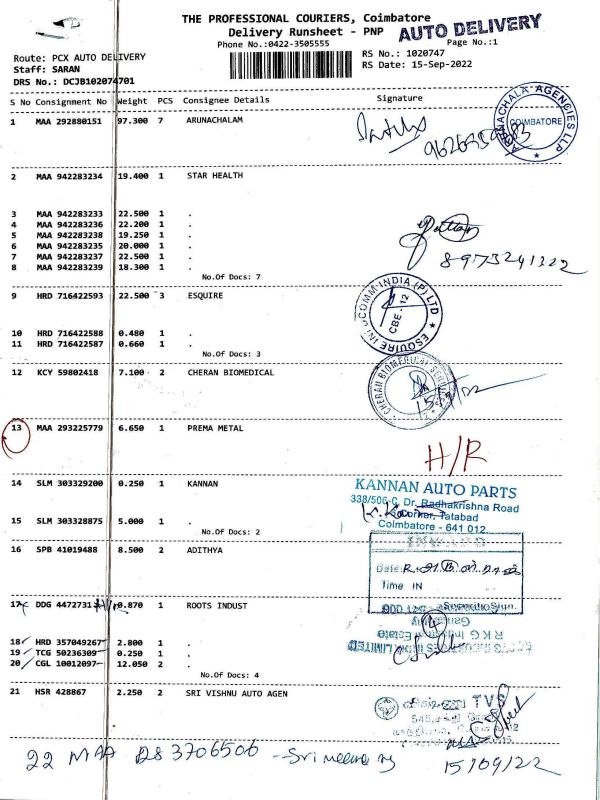 THE PROFESSIONAL COURIERS, Coimbatore
Delivery Runsheet - PNP
AUTO DELIVERY
Phone No.:0422-3505555
Page No.:1
Route: PCX AUTO DELIVERY
Staff: SARAN
DRS No.: DCJB102074701
RS No.: 1020747
RS Date: 15-Sep-2022
S No Consignment No Weight PCS Consignee Details Signature
1 MAA 292880151 97.300 7 ARUNACHALAM
ARUNACHALA AGENCIES LLP
COIMBATORE
2 MAA 942283234 19.400 1 STAR HEALTH
3 MAA 942283233 22.500 1 .
4 MAA 942283236 22.200 1 .
5 MAA 942283238 19.250 1 .
6 MAA 942283235 20.000 1 .
7 MAA 942283237 22.500 1 .
8 MAA 942283239 18.300 1 .
8973241322
No.Of Docs: 7
9 HRD 716422593 22.500 3 ESQUIRE
ESQUIRE INFOCOMM INDIA (P) LTD
CBE - 12
10 HRD 716422588 0.480 1 .
11 HRD 716422587 0.660 1 .
No.Of Docs: 3
12 KCY 59802418 7.100 2 CHERAN BIOMEDICAL
CHERAN BIOMEDICAL
13 MAA 293225779 6.650 1 PREMA METAL
H/R
14 SLM 303329200 0.250 1 KANNAN
KANNAN AUTO PARTS
338/506-C, Dr. Radhakrishna Road
Corner, Tatabad
Coimbatore - 641 012
15 SLM 303328875 5.000 1 .
No.Of Docs: 2
16 SPB 41019488 8.500 2 ADITHYA
INWARD
Date:
Time IN
17 DDG 4472731 0.870 1 ROOTS INDUST
R K G Industrial Estate
18 HRD 357049267 2.800 1 .
19 TCG 50236309 0.250 1 .
20 CGL 10012097 12.050 2 .
No.Of Docs: 4
21 HSR 428867 2.250 2 SRI VISHNU AUTO AGEN
TVS
22 MAA 283706506
15/09/22